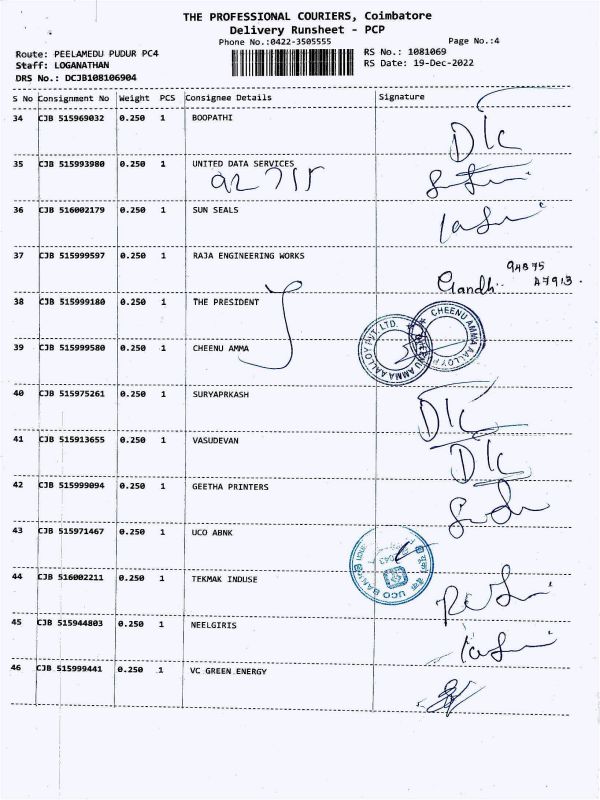 THE PROFESSIONAL COURIERS, Coimbatore
Delivery Runsheet - PCP
Phone No.:0422-3505555
Page No.:4
Route: PEELAMEDU PUDUR PC4
RS No.: 1081069
Staff: LOGANATHAN
RS Date: 19-Dec-2022
DRS No.: DCJB108106904
S No Consignment No Weight PCS Consignee Details Signature
34 CJB 515969032 0.250 1 BOOPATHI
D/c
35 CJB 515993980 0.250 1 UNITED DATA SERVICES
36 CJB 516002179 0.250 1 SUN SEALS
37 CJB 515999597 0.250 1 RAJA ENGINEERING WORKS
Gandhi. 94875
47913.
38 CJB 515999180 1 0.250 THE PRESIDENT
CHEENU AMMA AALLOY PVT. LTD.
CHEENU AMMA AALLOY
39 CJB 515999580 0.250 1 CHEENU AMMA
40 CJB 515975261 0.250 1 SURYAPRKASH
D/c
41 CJB 515913655 0.250 1 VASUDEVAN
D/c
42 CJB 515999094 0.250 1 GEETHA PRINTERS
43 CJB 515971467 0.250 1 UCO ABNK
UCO BANK
44 CJB 516002211 0.250 1 TEKMAK INDUSE
45 CJB 515944803 0.250 1 NEELGIRIS
46 CJB 515999441 0.250 1 VC GREEN ENERGY